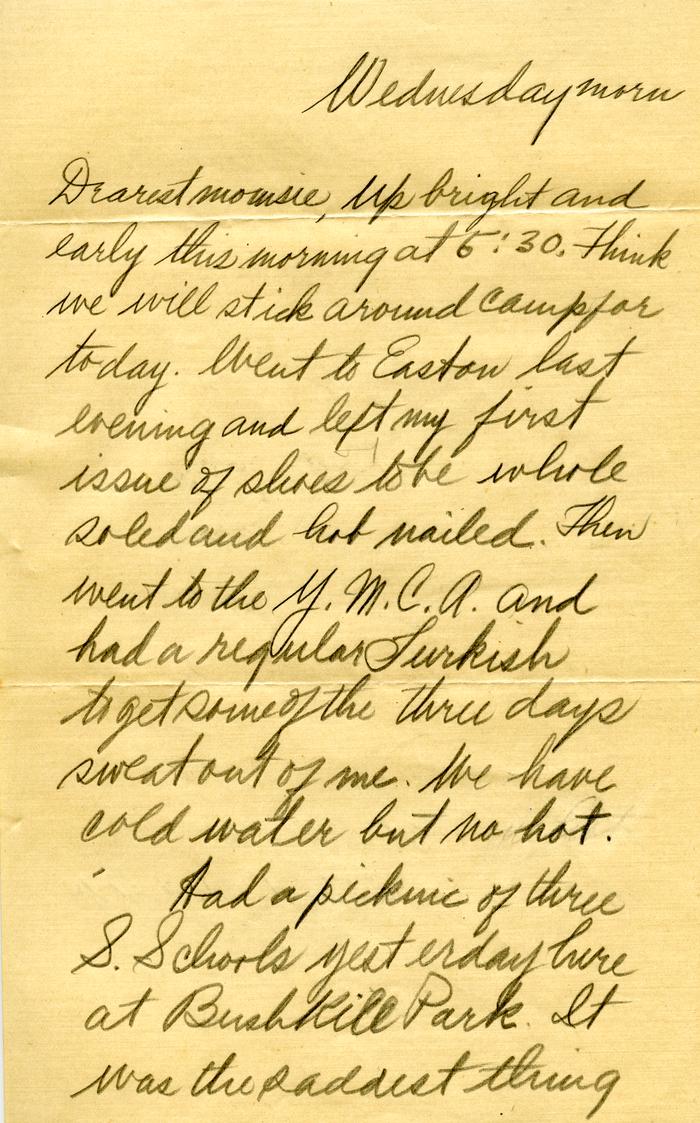 Wednesday morn
Dearest momsie, up bright and
early this morning at 5:30. Think
we will stick around camp for
today. Went to Easton last
evening and left my first
issue of shoes to be whole
soled and hob nailed. Then
went to the Y.M.C.A. and
had a regular Turkish
to get some of the three days
sweat out of me. We have
cold water but no hot.
Had a picknic of three
S. Schools yesterday here
at Bushkill Park. It
was the saddest thing